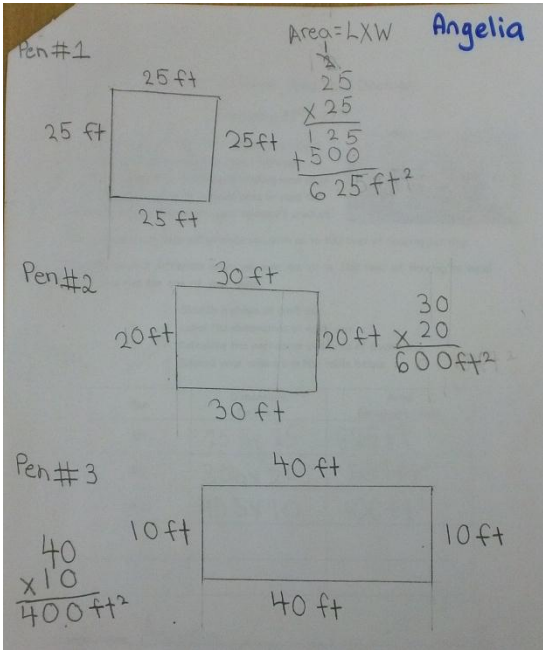 Angelia
Pen #1
Area=LXW
25 ft
25 ft
25 ft
25 ft
1
2
25
x 25
125
+500
625 ft²
Pen #2
30 ft
20 ft
20 ft
30 ft
30
x 20
600 ft²
Pen #3
40 ft
10 ft
10 ft
40 ft
40
x 10
400 ft²